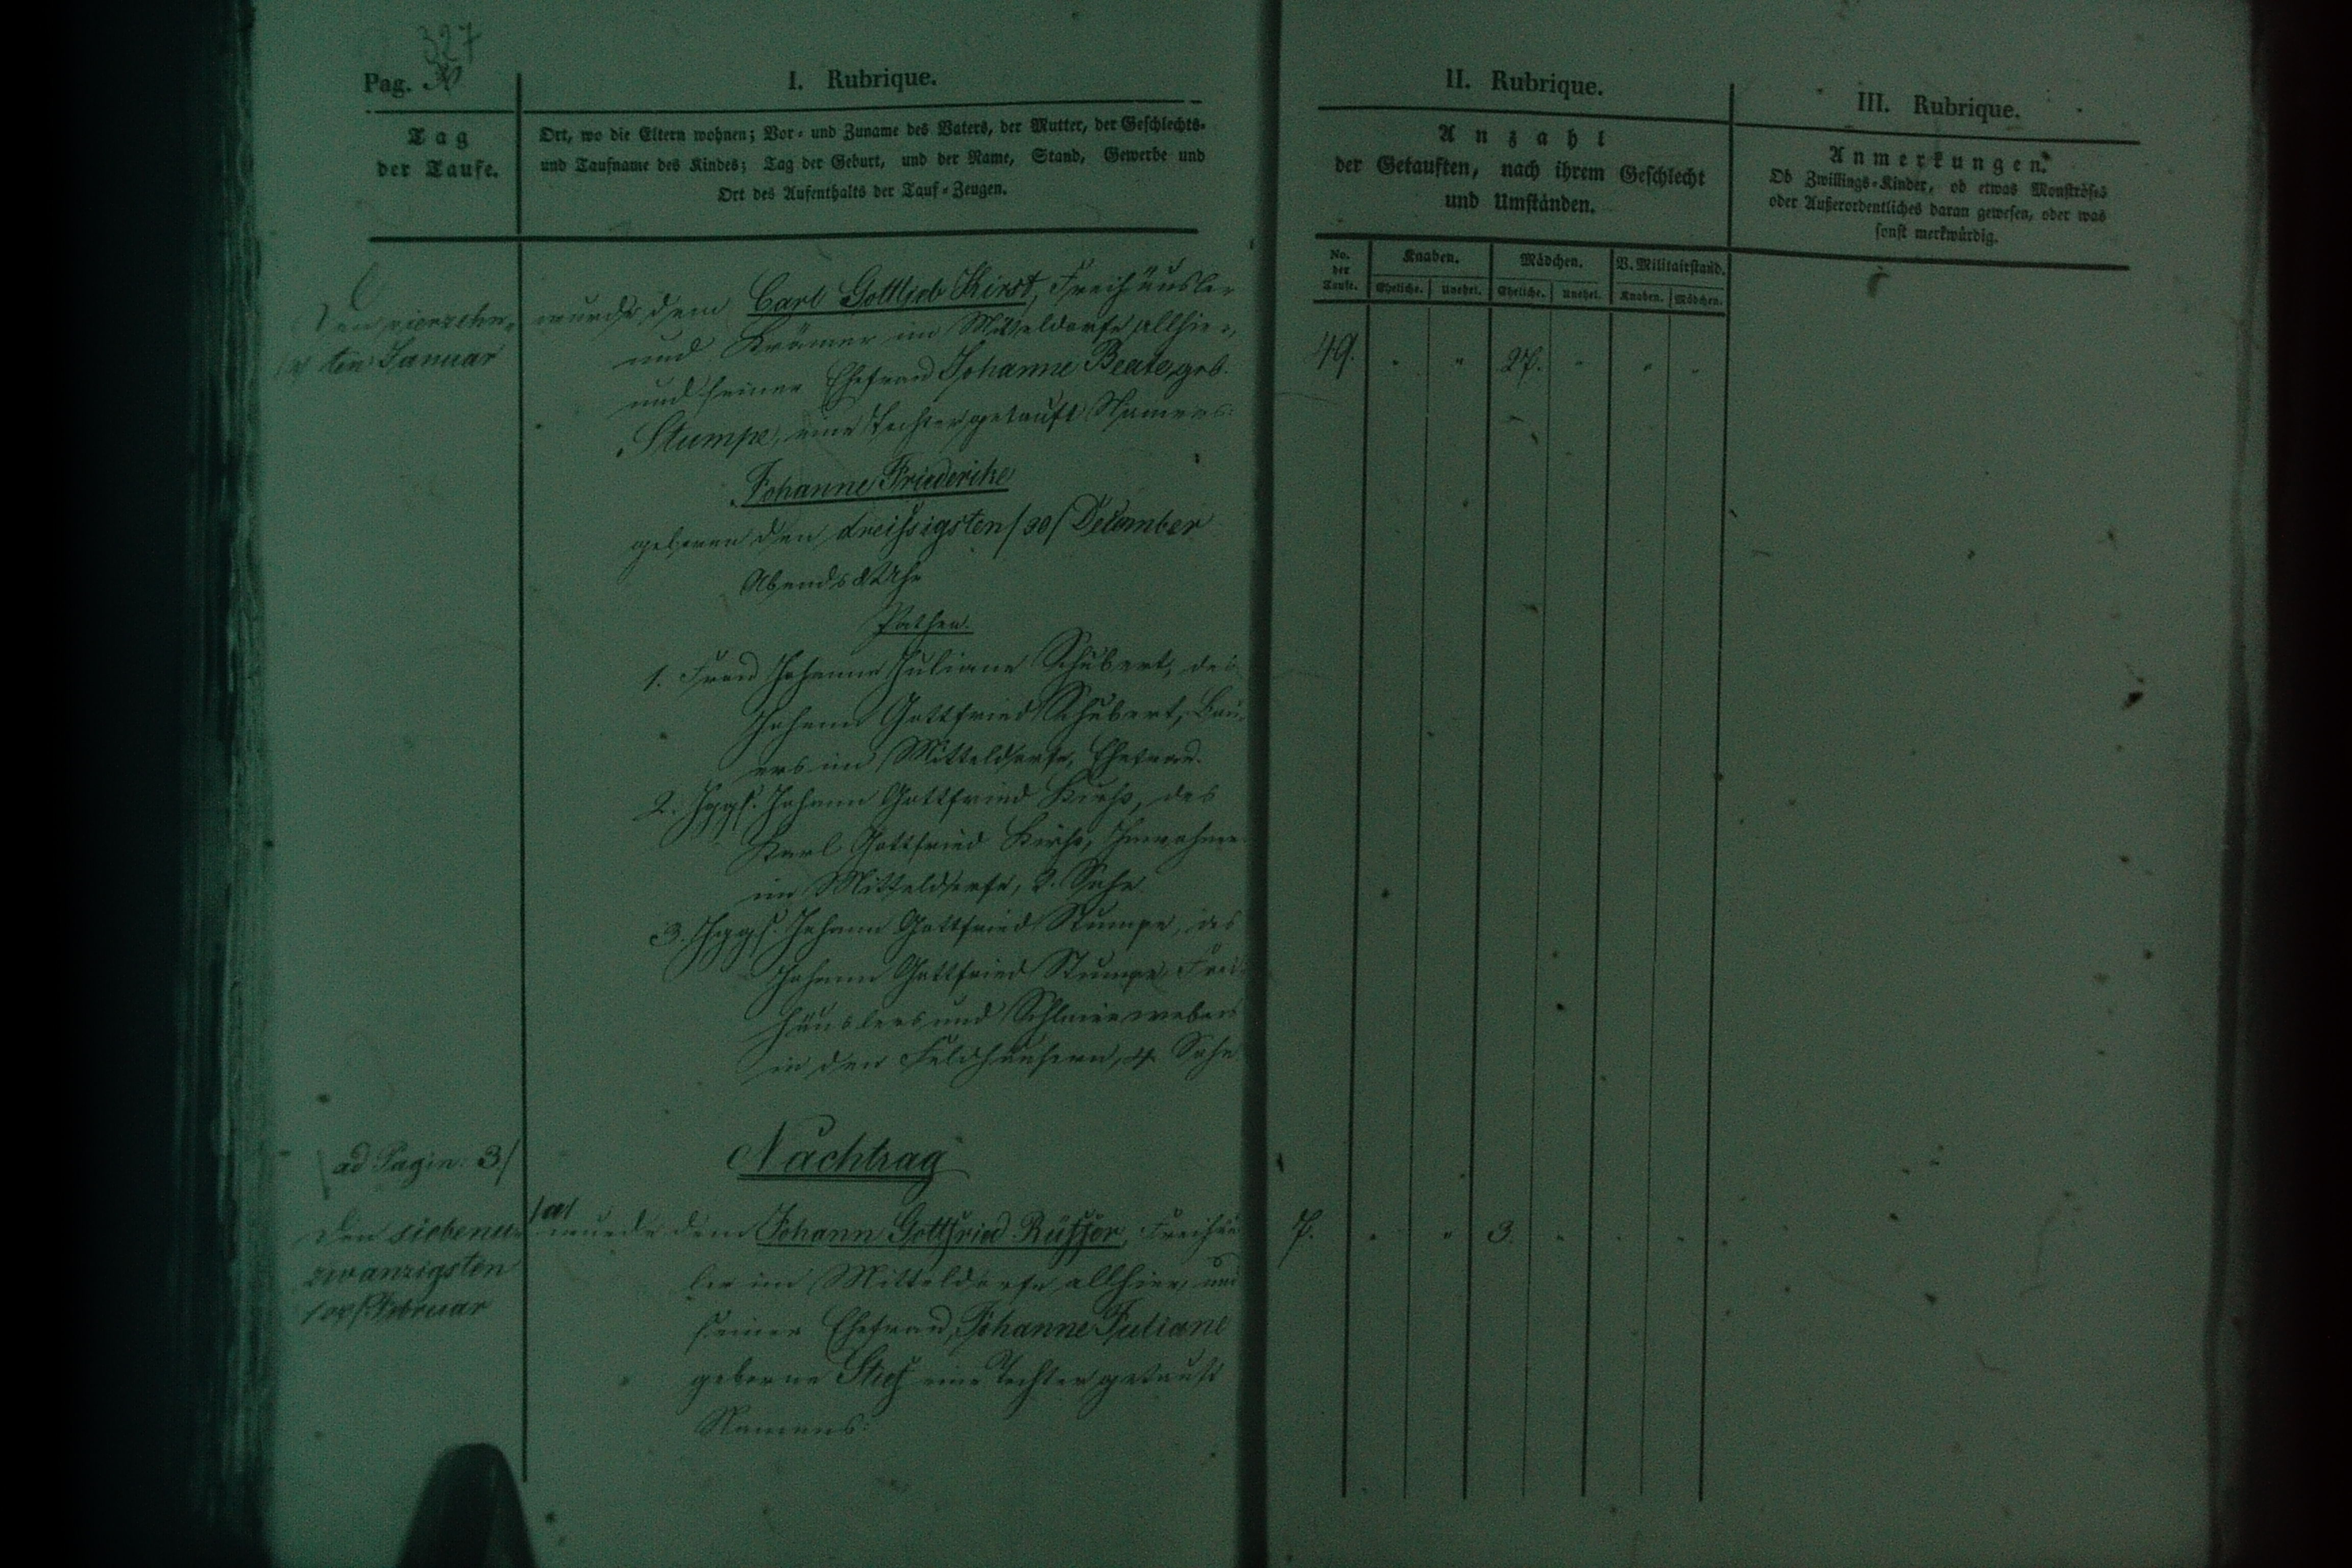 327
Pag.
I. Rubrique.
Tag
der Taufe.
Ort, wo die Eltern wohnen; Vor- und Zuname des Vaters, der Mutter, der Geschlechts-
und Taufname des Kindes; Tag der Geburt, und der Name, Stand, Gewerbe und
Ort des Aufenthalts der Tauf-Zeugen.
Den vierzehn-
ten Januar
wurde dem Carl Gottlieb Kirst, Freihäusler
und Krämer im Mitteldorfe allhier,
und seiner Ehefrau Johanne Beate, geb.
Stumpe, eine Tochter getauft Namens:
Johanne Friederike
geboren den dreißigsten /30/ December
Abends 8 Uhr
Pathen.
1. Frau Johanne Juliane Schubert, des
Johann Gottfried Schubert, Bau-
ers im Mitteldorfe, Ehefrau.
2. Jggs. Johann Gottfried des
Karl Gottfried Inwohner
im Mitteldorfe, 2. Sohn
3. Jggs. Johann Gottfried Stumpe, des
Johann Gottfried Stumpe Frei-
häuslers und Schleierwebers
in den Feldhäusern, 4. Sohn
Nachtrag
/ad Pagin: 3/
Den siebenund
zwanzigsten
/27/ Februar
/a/ wurde dem Johann Gottfried Rüffer, Freihäus
ler im Mitteldorfe allhier, und
seiner Ehefrau, Johanne Juliane
geborne Stief eine Tochter getauft
Namens:
II. Rubrique.
Anzahl
der Getauften, nach ihrem Geschlecht
und Umständen.
No. der Taufe.
Knaben.
Mädchen.
V. Militairstand.
Eheliche. Unehel. Eheliche. Unehel. Knaben. Mädchen.
49. " " 27. " " "
7. " " 3. " " "
III. Rubrique.
Anmerkungen.
Ob Zwillings-Kinder, ob etwas Monströses
oder Außerordentliches daran gewesen, oder was
sonst merkwürdig.